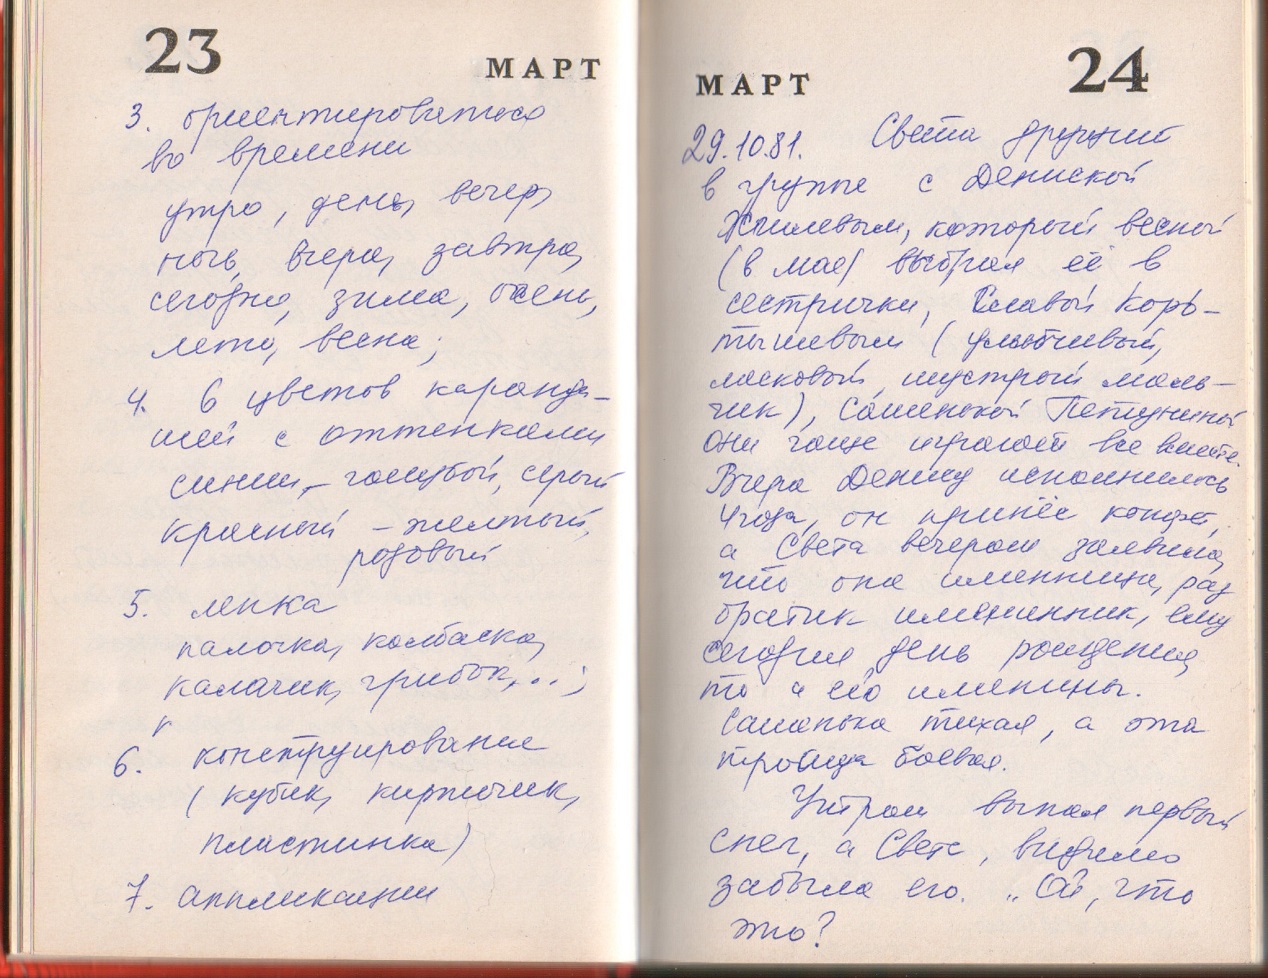 23 МАРТ
3. ориентироваться
во времени
утро, день, вечер,
ночь, вчера, завтра,
сегодня, зима, осень,
лето, весна;
4. 6 цветов каранда-
шей с оттенками
синий – голубой, серый
красный – желтый,
розовый
5. лепка
палочка, колбаска,
калачик, грибок,...;
6. конструирование
(кубик, кирпичик,
пластинка)
7. аппликация
МАРТ 24
29.10.81. Света дружит
в группе с Дениской
который весной
(в мае) выбрал её в
сестрички, Славой Коро-
тышевым (улыбчивый,
ласковый, шустрый маль-
чик), Сашенькой
Они чаще играют все вместе.
Вчера Денису исполнилось
4 года, он принёс конфет,
а Света вечером заявила,
что она именинница, раз
братик именинник, ему
сегодня день рождения,
то и её именины.
Сашенька тихая, а эта
троица боевая.
Утром выпал первый
снег, а Света, видимо
забыла его. „Ой, что
это?